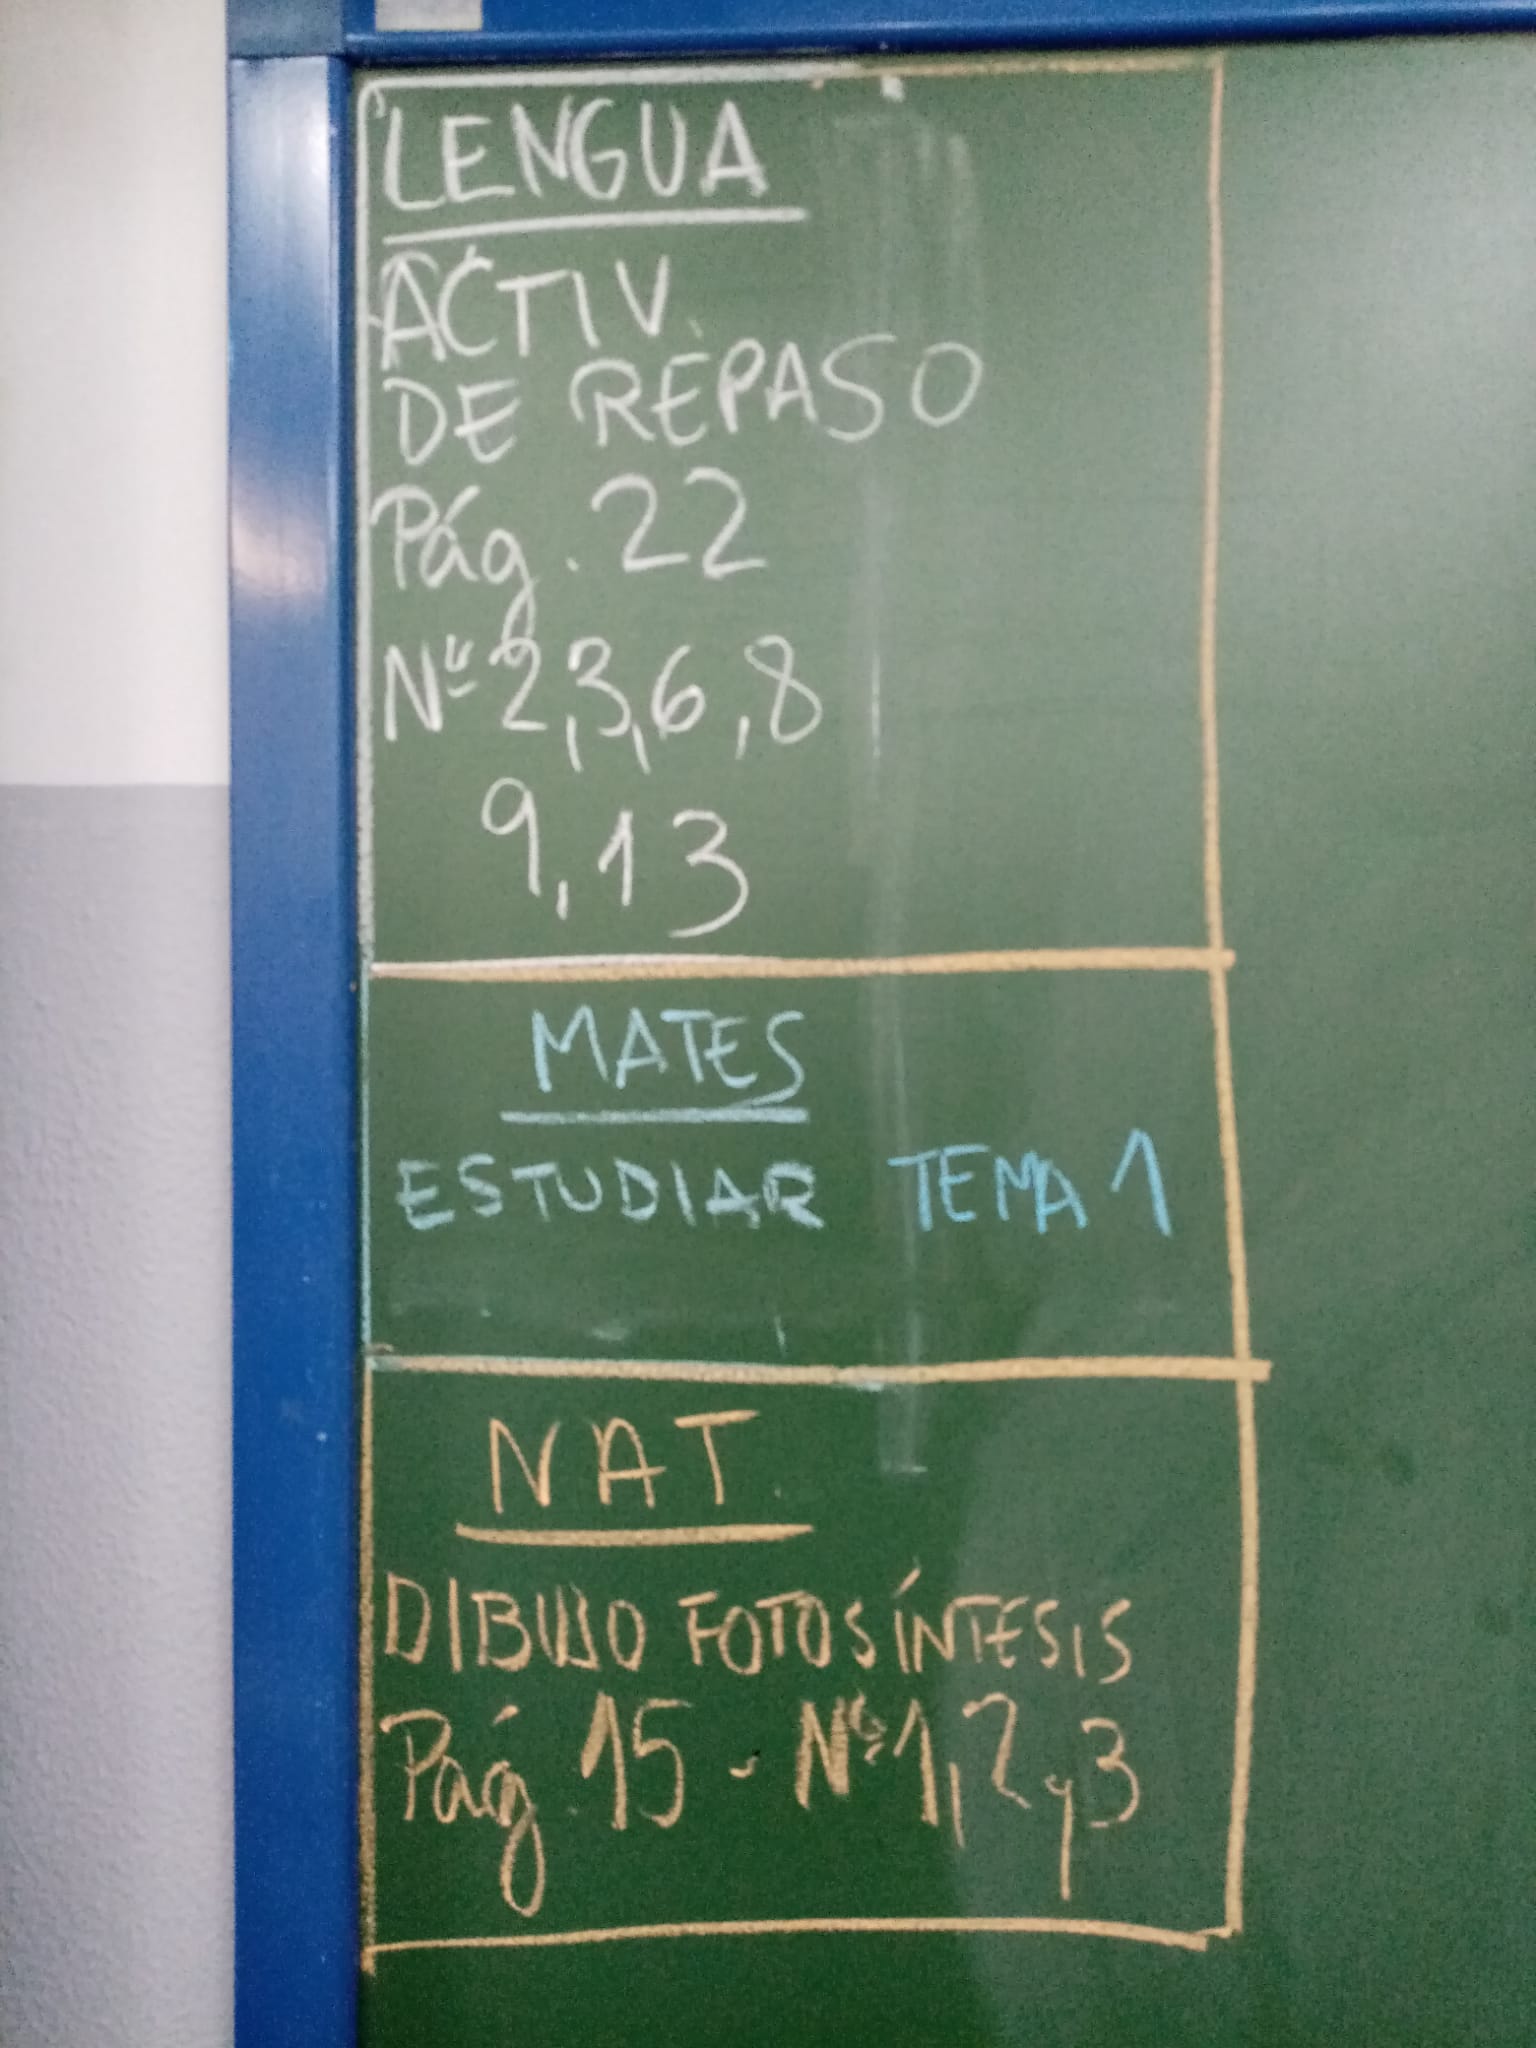 LENGUA
ACTIV.
DE REPASO
Pág. 22
Nº 2, 3, 6, 8
9, 13
MATES
ESTUDIAR TEMA 1
NAT.
DIBUJO FOTOSÍNTESIS
Pág. 15 - Nº 1, 2 y 3